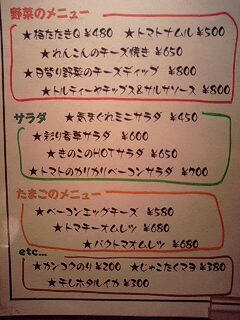 野菜のメニュー
★梅たたきQ ¥480 ★トマトナムル ¥500
★れんこんのチーズ焼き ¥650
★日替り野菜のチーズディップ ¥800
★トルティーヤチップス&サルサソース ¥800
サラダ ★気まぐれミニサラダ ¥450
★彩り香草サラダ ¥600
★きのこのHOTサラダ ¥650
★トマトのカリカリベーコンサラダ ¥700
たまごのメニュー
★ベーコンエッグチーズ ¥580
★トマチーズオムレツ ¥680
★バクトマオムレツ ¥680
etc...
★カンコクのり ¥200 ★じゃこたくマヨ ¥380
★干しホタルイカ ¥300